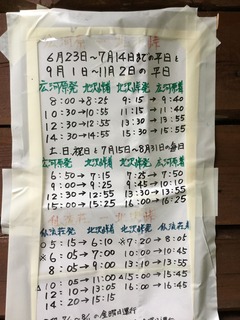 6月23日〜7月14日までの平日と
9月1日〜11月2日の平日
広河原発 北沢峠着 北沢峠発 広河原着
8:00→8:25 9:15→9:40
10:30→10:55 11:15→11:40
12:30→12:55 13:30→13:55
14:30→14:55 15:30→15:55
土、日、祝日と7月15日〜8月31日の毎日
広河原発 北沢峠着 北沢峠発 広河原着
6:50→7:15 7:25→7:50
9:00→9:25 9:45→10:10
12:30→12:55 13:30→13:55
15:00→15:25 16:00→16:25
北沢峠
5:15→6:10 ※7:20→8:05
※6:05→7:00
8:05→9:00 10:00→10:45
13:10→13:55
△10:05→11:00 △15:00→15:45
12:10→13:05 16:00→16:45
14:20→15:15